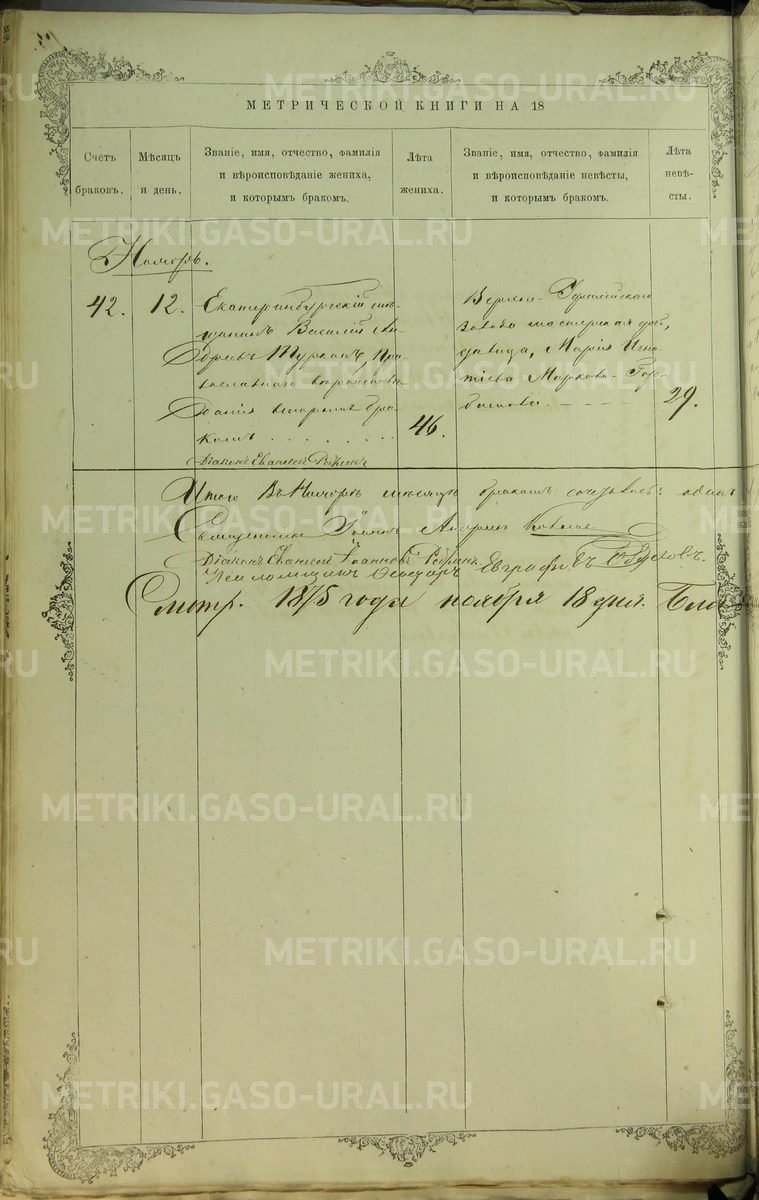 МЕТРИЧЕСКОЙ КНИГИ НА 18
Счетъ браковъ.
Мѣсяцъ и день.
Званіе, имя, отчество, фамилія и вѣроисповѣданіе жениха, и которымъ бракомъ.
Лѣта жениха.
Званіе, имя, отчество, фамилія и вѣроисповѣданіе невѣсты, и которымъ бракомъ.
Лѣта невѣсты.
Ноябрь.
42. 12.
Екатеринбургскій мѣ-
щанинъ Василій Ан-
дреевъ, Пра-
вославнаго вѣроисповѣ-
данія вторымъ бра-
комъ
46.
Верхне-
завода мастерская дочь,
дѣвица, Марія Игна-
тіева Маркова-
29.
Діаконъ
Итого въ Ноябрѣ мѣсяцѣ бракомъ сочетались: один
Священникъ Іоаннъ
Діаконъ Іоанновъ
Псаломщикъ Ѳеодоръ
Смотр. 1875 года ноября 18 дня. Бла
METRIKI.GASO-URAL.RU